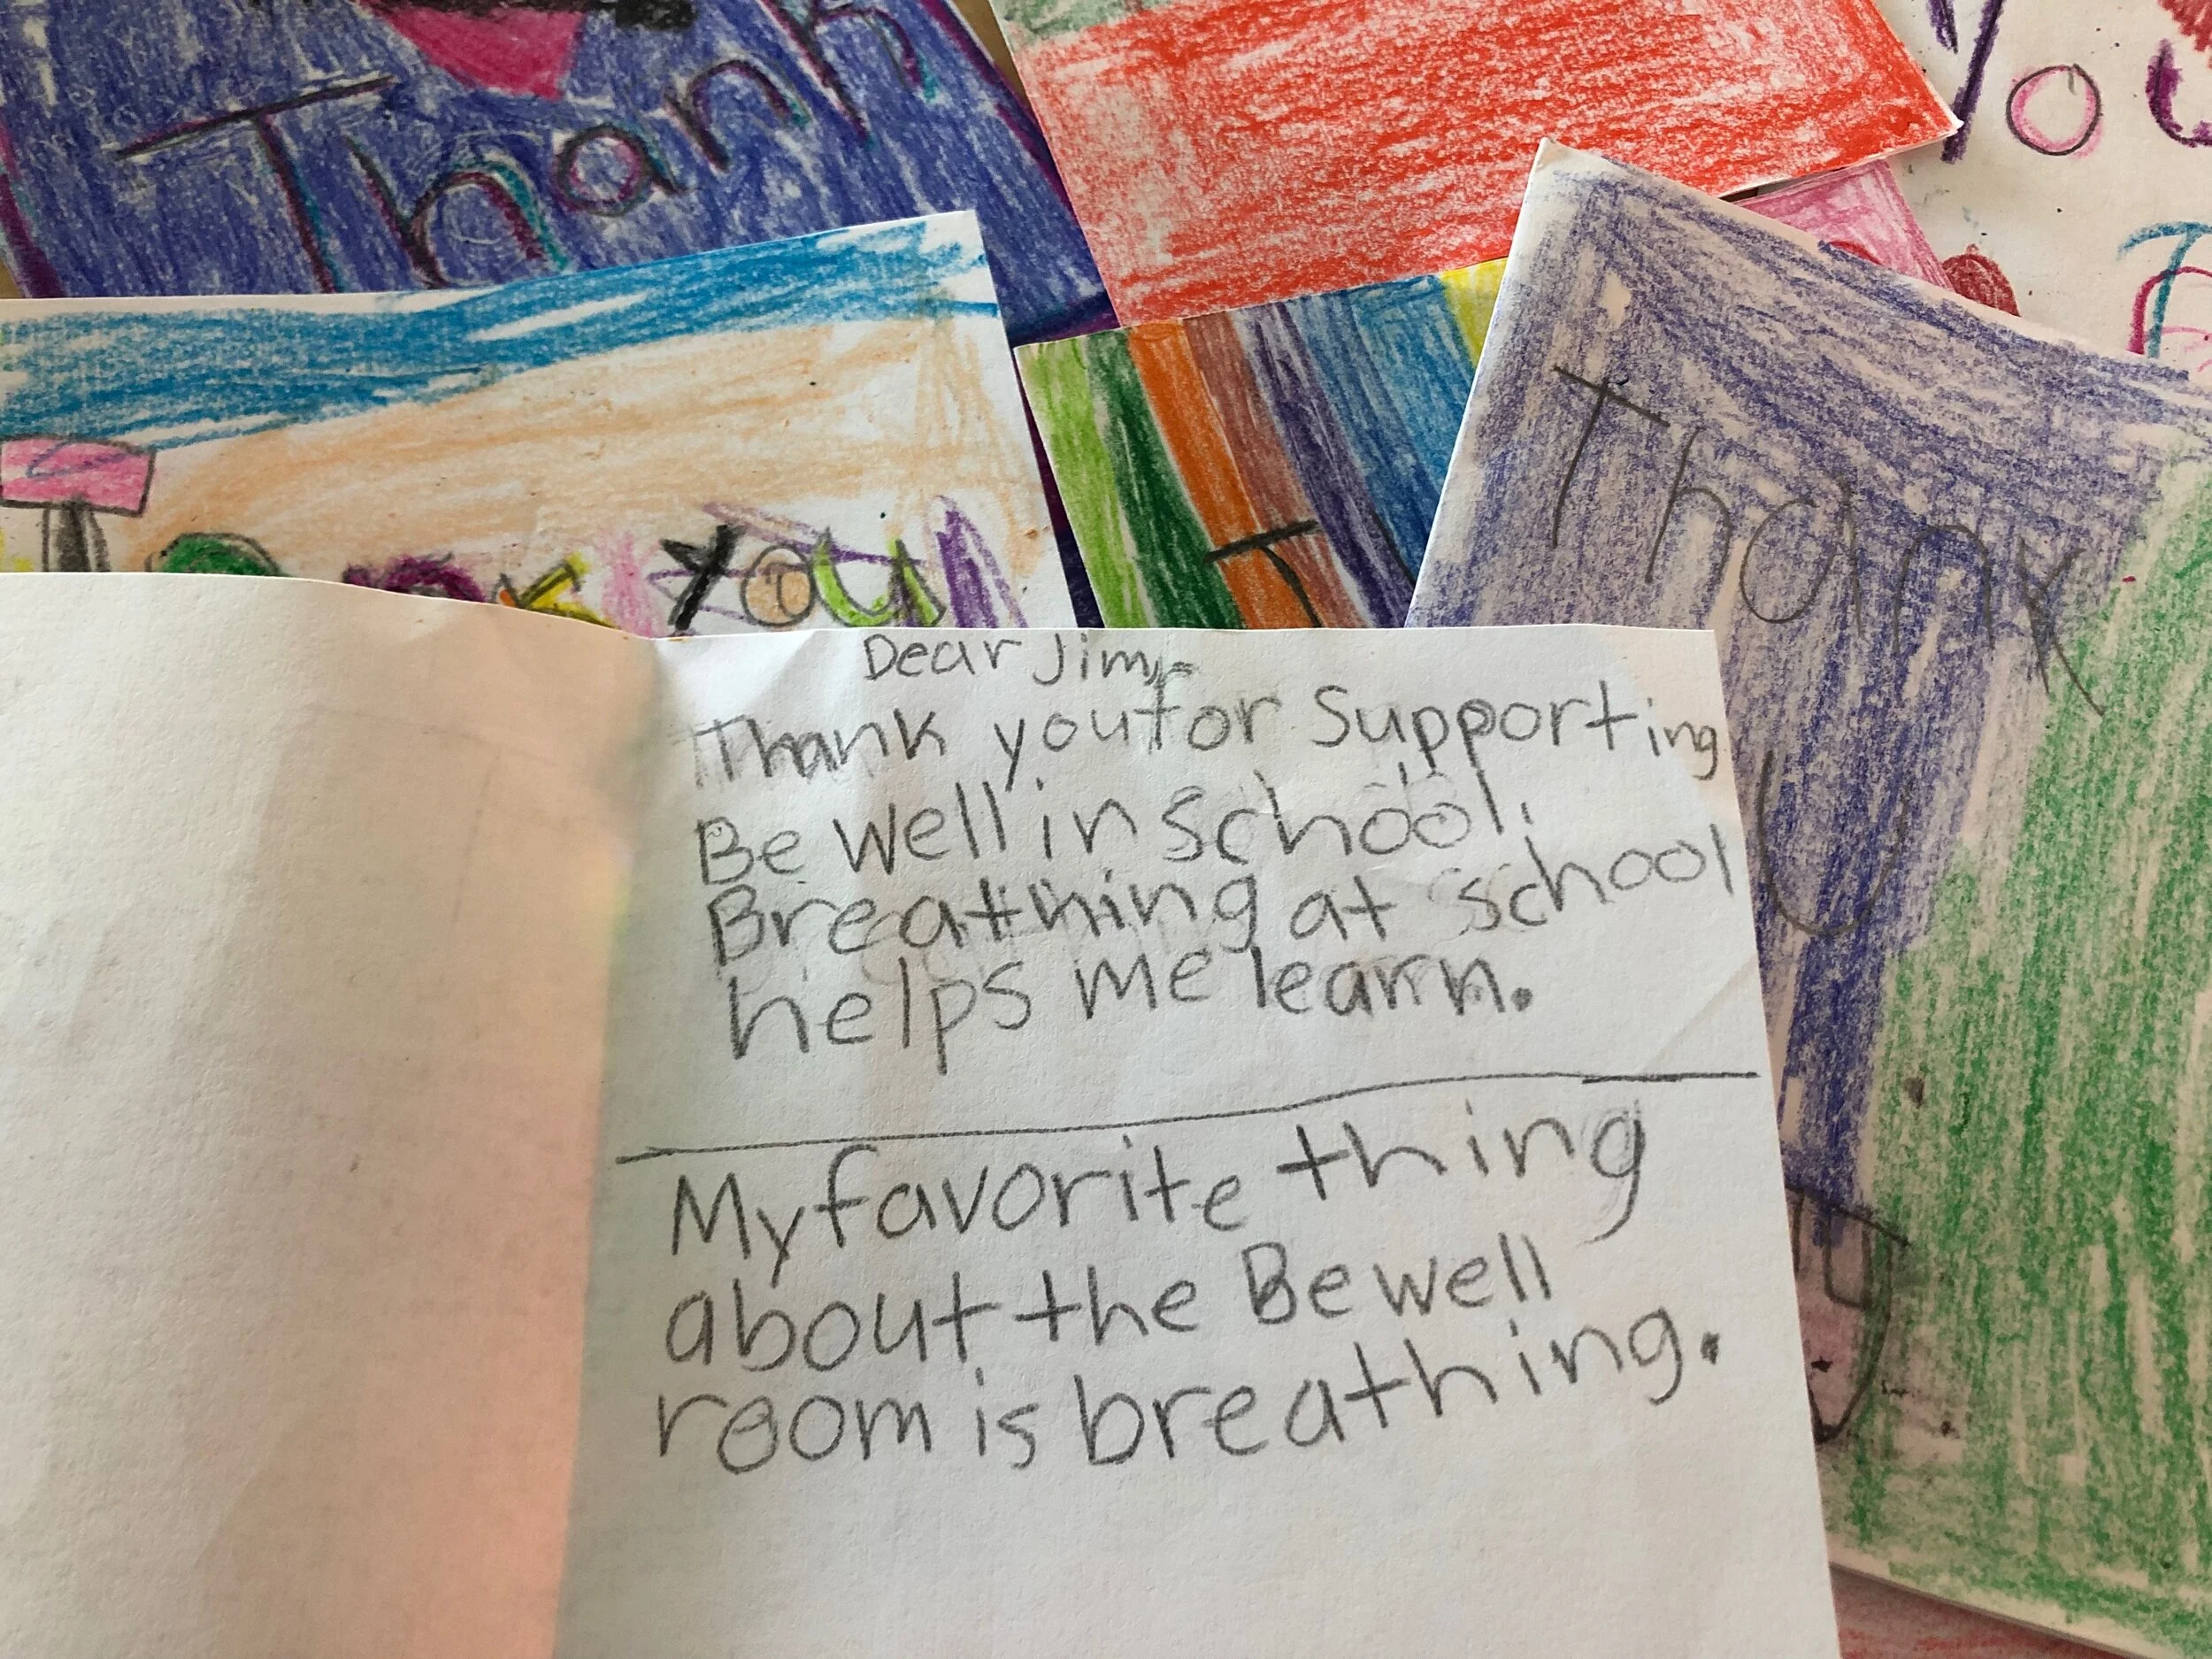 Thank
You
Thank
U
Thank You
T
Dear Jim,
Thank you for Supporting
Be Well in School.
Breathing at school
helps me learn.
My favorite thing
about the Be well
room is breathing.